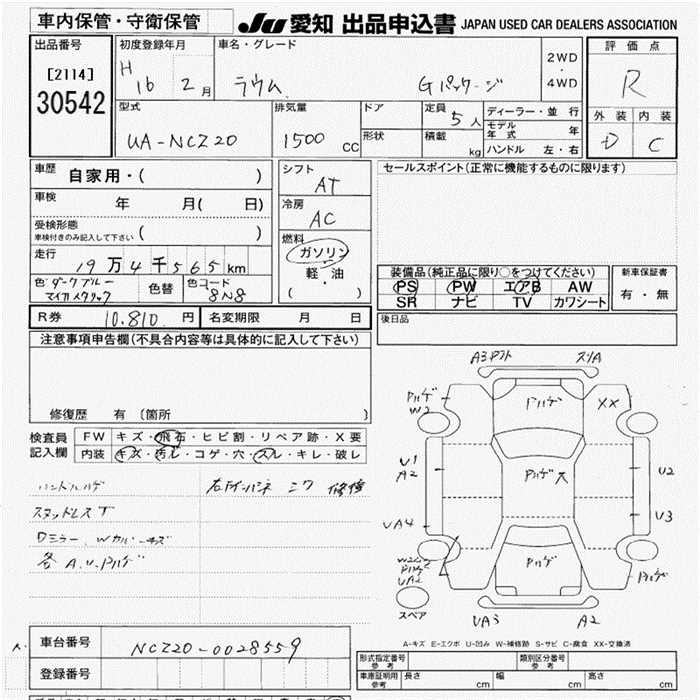 車内保管・守衛保管 JU 愛知 出品申込書 JAPAN USED CAR DEALERS ASSOCIATION
出品番号 初度登録年月 車名・グレード 2WD・4WD 評価点
[2114] H 16 2月 ラウム Gパッケージ R
30542 型式 排気量 ドア 定員 5人 ディーラー・並行 外装 内装
UA-NCZ20 1500 CC 形状 積載 kg モデル年式 年 D C
ハンドル 左・右
車歴 自家用・( ) シフト AT セールスポイント(正常に機能するものに限ります)
車検 年 月( 日) 冷房 AC
受検形態
車検付きのみ記入して下さい ( ) 燃料
走行 19万4千565km ガソリン
色 ダークブルー マイカメタリック 色替 色コード 8N8 軽・油 ( )
装備品(純正品に限り○をつけてください) 新車保証書
PS PW エアB AW 有・無
SR ナビ TV カワシート
R券 10,810円 名変期限 月 日 後日品
注意事項申告欄(不具合内容等は具体的に記入して下さい)
修復歴 有 (箇所 )
検査員 FW キズ・飛石・ヒビ割・リペア跡・X要
記入欄 内装 キズ・汚レ・コゲ・穴・スレ・キレ・破レ
ハンドルハゲ 右Fインパネ ミワ 修復
スタッドレス T
Dミラー、Wカバーキズ
各 A.U.Pハゲ
A3 スリA
Pハゲ W2 Pハゲ XX
U1 A2 Pハゲ大 U2
UA4 U3
Pハゲ UA2 Pハゲ Pハゲ
スペア UA3 A2
A-キズ E-エクボ U-凹み W-補修跡 S-サビ C-腐食 XX-交換済
車台番号 NCZ20-0028559
登録番号
形式指定番号 参考 類別区分番号 参考
車庫証明用 参考 長さ cm 幅 cm 高さ cm